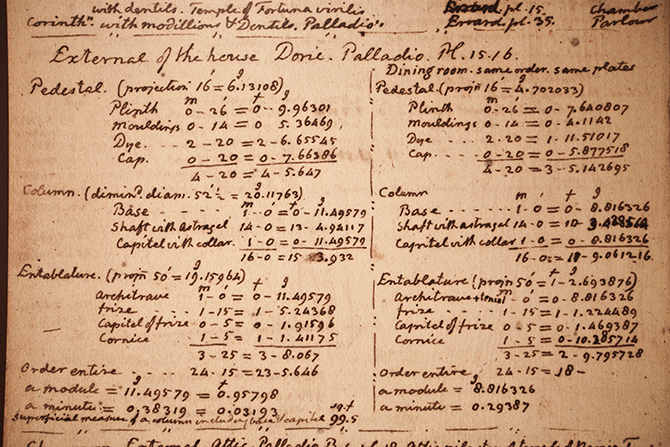 with dentils. Temple of Fortuna virilis pl. 15. Chamber
Corinthn. with modillions & Dentils. Palladio. pl. 35. Parlour
External of the house Doric. Palladio. Pl. 15.16.
Pedestal. (projection 16 = 6.13108)
m f g
Plinth 0-26 = 0-9.96301
mouldings 0-14 = 0 5.36469
Dye. 2-20 = 2-6.65545
Cap. 0-20 = 0-7.66386
4-20 = 4-5.647
Column. (diminn. diam. 52½ = 20.11763)
Base 1-0 = 0-11.49579
Shaft with astragal 14-0 = 13-4.94117
Capitel with collar. 1-0 = 0-11.49579
16-0 = 15 3.932
Entablature. (projn 50' = 19.15964)
Architrave 1-0 = 0-11.49579
frize 1-15 = 1-5.24368
Capitel of frize 0-5 = 0-1.91596
Cornice 1-5 = 1-1.41175
3-25 = 3-8.067
Order entire 24-15 = 23-5.646
a module = 11.49579 = 0.95798
a minute = 0.38319 = 0.03193
Superficial measure of a column including base & capitel 99.5
Dining room. same order. same plates
Pedestal (projn 16 = 4.702033)
Plinth 0-26 = 0-7.640807
mouldings 0-14 = 0-4.1142
Dye 2-20 = 1-11.51017
Cap. 0-20 = 0-5.877518
4-20 = 3-5.142695
Column m f g
Base 1-0 = 0-8.816326
Shaft with astragal 14-0 = 10-
Capitel with collar 1-0 = 0-8.816326
16-0 = 11-9.061216
Entablature (projn 50' = 1-2.693876)
Architrave 1-0 = 0-8.816326
frize 1-15 = 1-1.224489
Capitel of frize 0-5 = 0-1.469387
Cornice 1-5 = 0-10.285714
3-25 = 2-9.795728
Order entire 24-15 = 18-
a module = 8.816326
a minute = 0.29387
External Attic Palladio